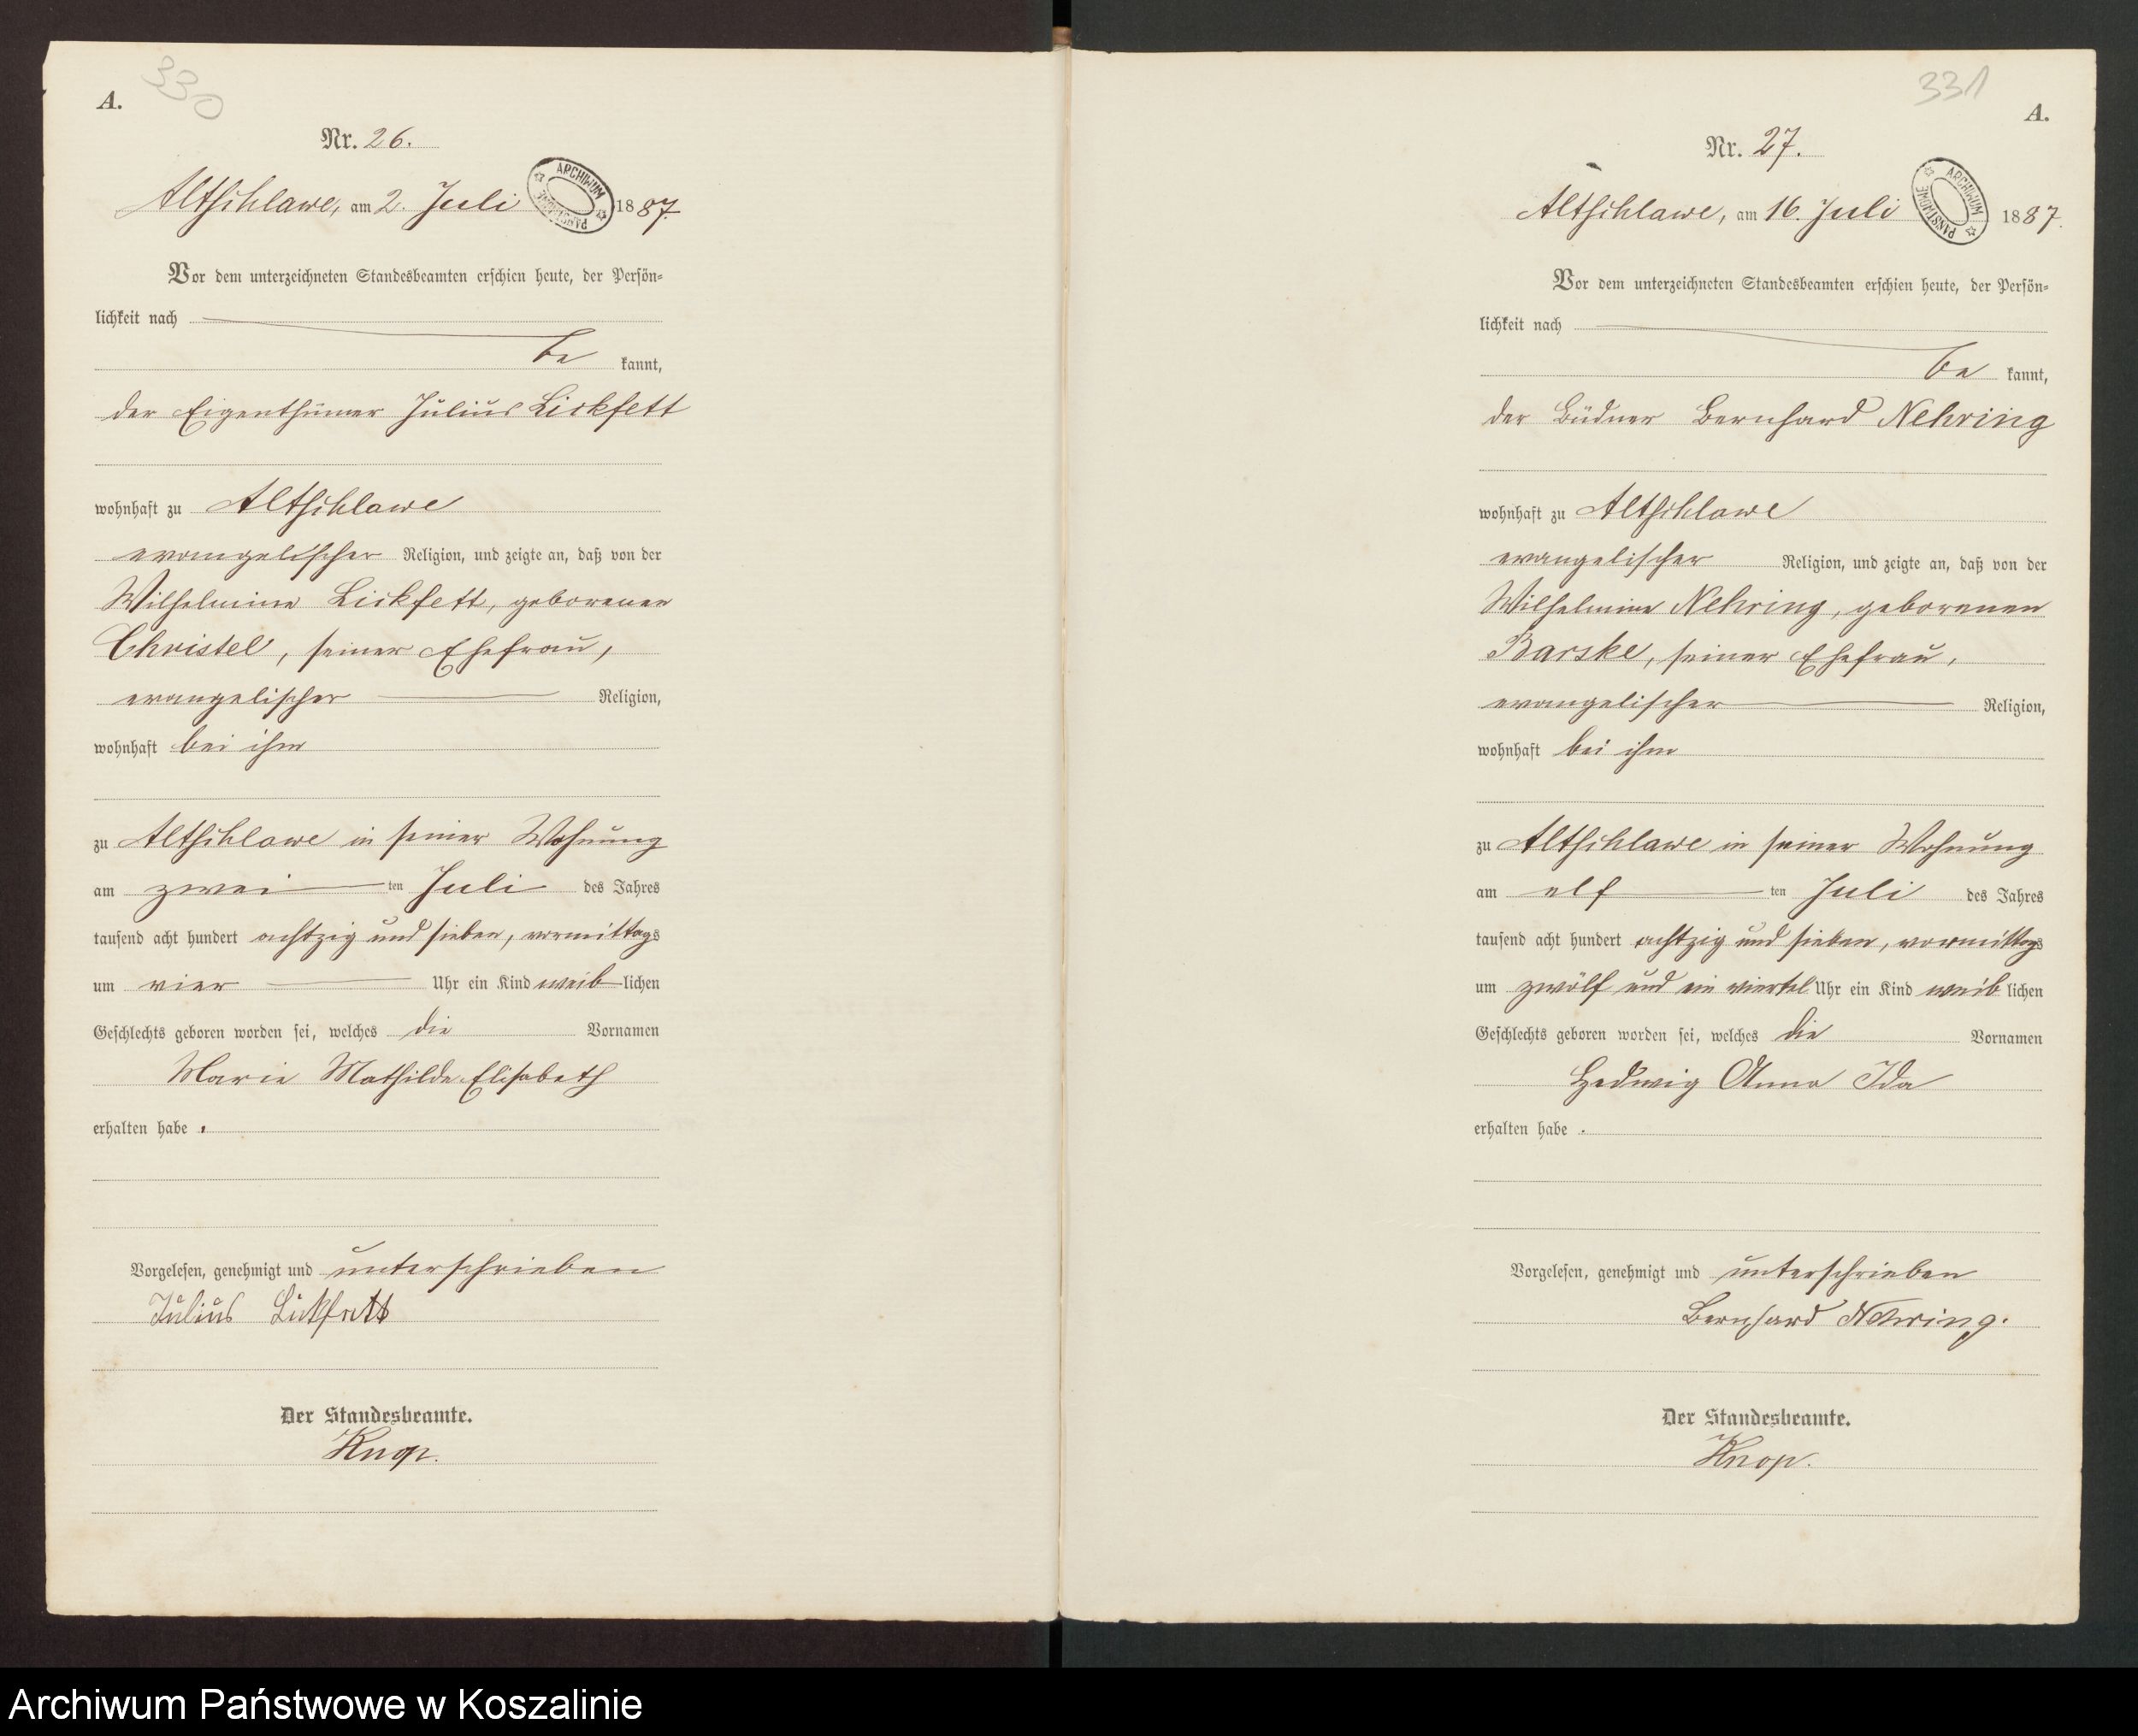 330
A.
Nr. 26.
Altschlawe, am 2. Juli 1887.
ARCHIWUM PAŃSTWOWE
Vor dem unterzeichneten Standesbeamten erschien heute, der Persön-
lichkeit nach
be kannt,
der Eigenthümer Julius Lickfett
wohnhaft zu Altschlawe
evangelischer Religion, und zeigte an, daß von der
Wilhelmine Lickfett, geborenen
Christel, seiner Ehefrau,
evangelischer Religion,
wohnhaft bei ihm
zu Altschlawe in seiner Wohnung
am zwei ten Juli des Jahres
tausend acht hundert achtzig und sieben, vormittags
um vier Uhr ein Kind weib lichen
Geschlechts geboren worden sei, welches die Vornamen
Marie Mathilde Elisabeth
erhalten habe .
Vorgelesen, genehmigt und unterschrieben
Julius Lickfett
Der Standesbeamte.
Knop.
331
A.
Nr. 27.
Altschlawe, am 16. Juli 1887.
ARCHIWUM PAŃSTWOWE
Vor dem unterzeichneten Standesbeamten erschien heute, der Persön-
lichkeit nach
be kannt,
der Büdner Bernhard Nehring
wohnhaft zu Altschlawe
evangelischer Religion, und zeigte an, daß von der
Wilhelmine Nehring, geborenen
Barske, seiner Ehefrau,
evangelischer Religion,
wohnhaft bei ihm
zu Altschlawe in seiner Wohnung
am elf ten Juli des Jahres
tausend acht hundert achtzig und sieben, vormittags
um zwölf und ein viertel Uhr ein Kind weib lichen
Geschlechts geboren worden sei, welches die Vornamen
Hedwig Anna Ida
erhalten habe .
Vorgelesen, genehmigt und unterschrieben
Bernhard Nehring.
Der Standesbeamte.
Knop.
Archiwum Państwowe w Koszalinie